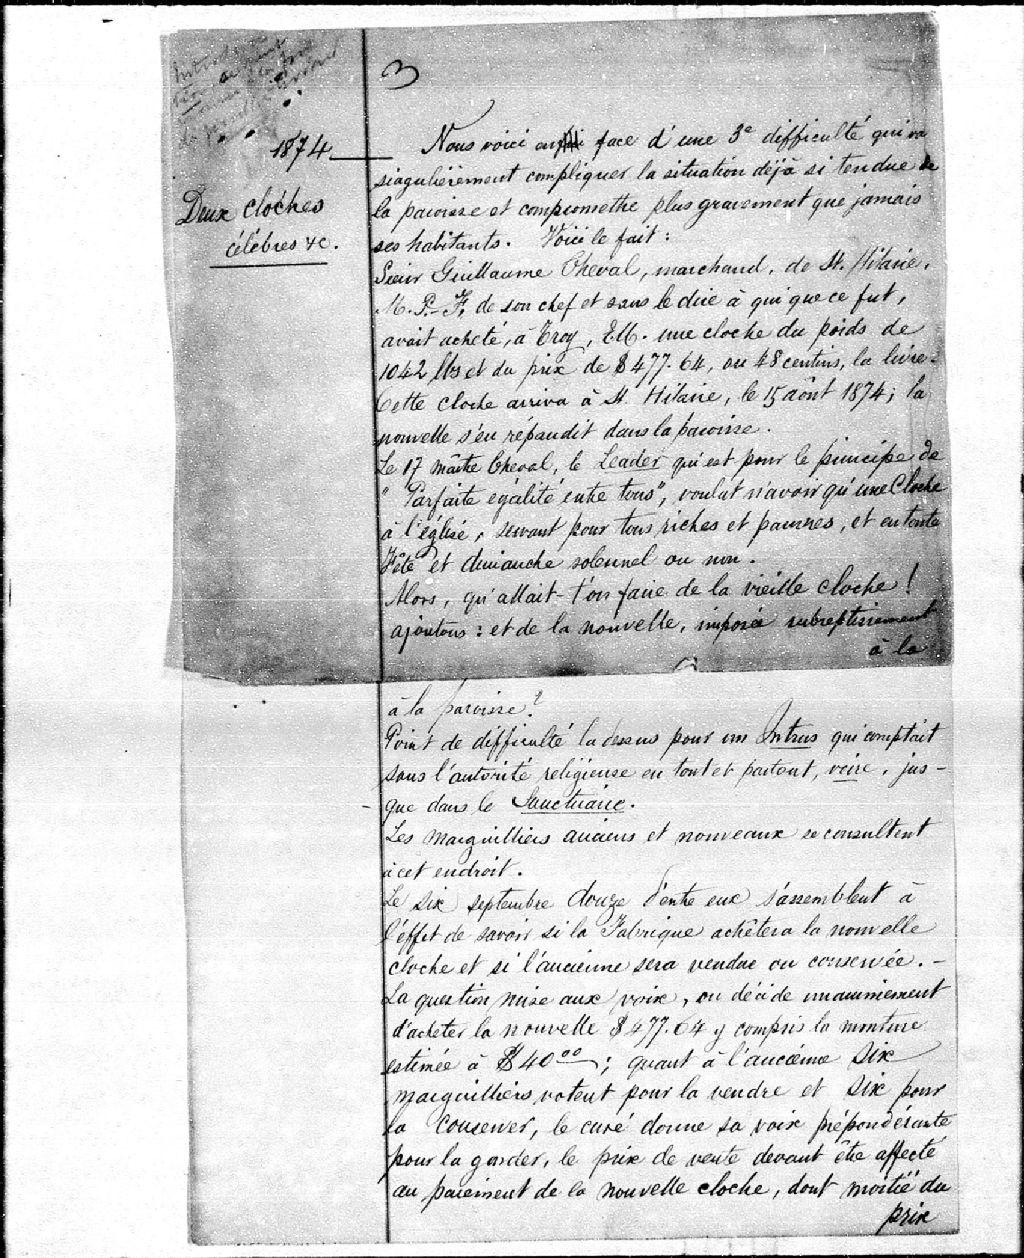 3
1874
Deux cloches
célèbres &c.
Nous voici en face d'une 3e difficulté qui va
singulièrement compliquer la situation déjà si tendue de
la paroisse et compromettre plus gravement que jamais
ses habitants. Voici le fait :
Sieur Guillaume Cheval, marchand, de St. Hilaire,
M. P.-F, de son chef et sans le dire à qui que ce fut,
avait acheté, à Troy, EU. une cloche du poids de
1042 lbs et du prix de $477.64, ou 48 centins, la livre.
Cette cloche arriva à St. Hilaire, le 15 août 1874; la
nouvelle s'en répandit dans la paroisse.
Le 17 maître Cheval, le Leader qui est pour le principe de
" Parfaite égalité entre tous", voulut n'avoir qu'une Cloche
à l'église, servant pour tous riches et pauvres, et en toute
Fête et dimanche solennel ou non.
Alors, qu'allait-t'on faire de la vieille cloche !
ajoutons : et de la nouvelle, imposée subreptissement
à la
à la paroisse ?
Point de difficulté la dessus pour un Intrus qui comptait
sans l'autorité religieuse en tout et partout, voire, jus-
que dans le Sanctuaire.
Les marguilliers anciens et nouveaux se consultent
à cet endroit.
Le six septembre douze d'entre eux s'assemblent à
l'éffet de savoir si la Fabrique achètera la nouvelle
cloche et si l'ancienne sera vendue ou conservée. -
La question mise aux voix, on décide unanimement
d'acheter la nouvelle $477.64 y compris la monture
estimée à $40 00 ; quant à l'ancienne six
marguilliers votent pour la vendre et six pour
la conserver, le curé donne sa voix prépondérante
pour la garder, le prix de vente devant être affecté
au paiement de la nouvelle cloche, dont moitié du
prix